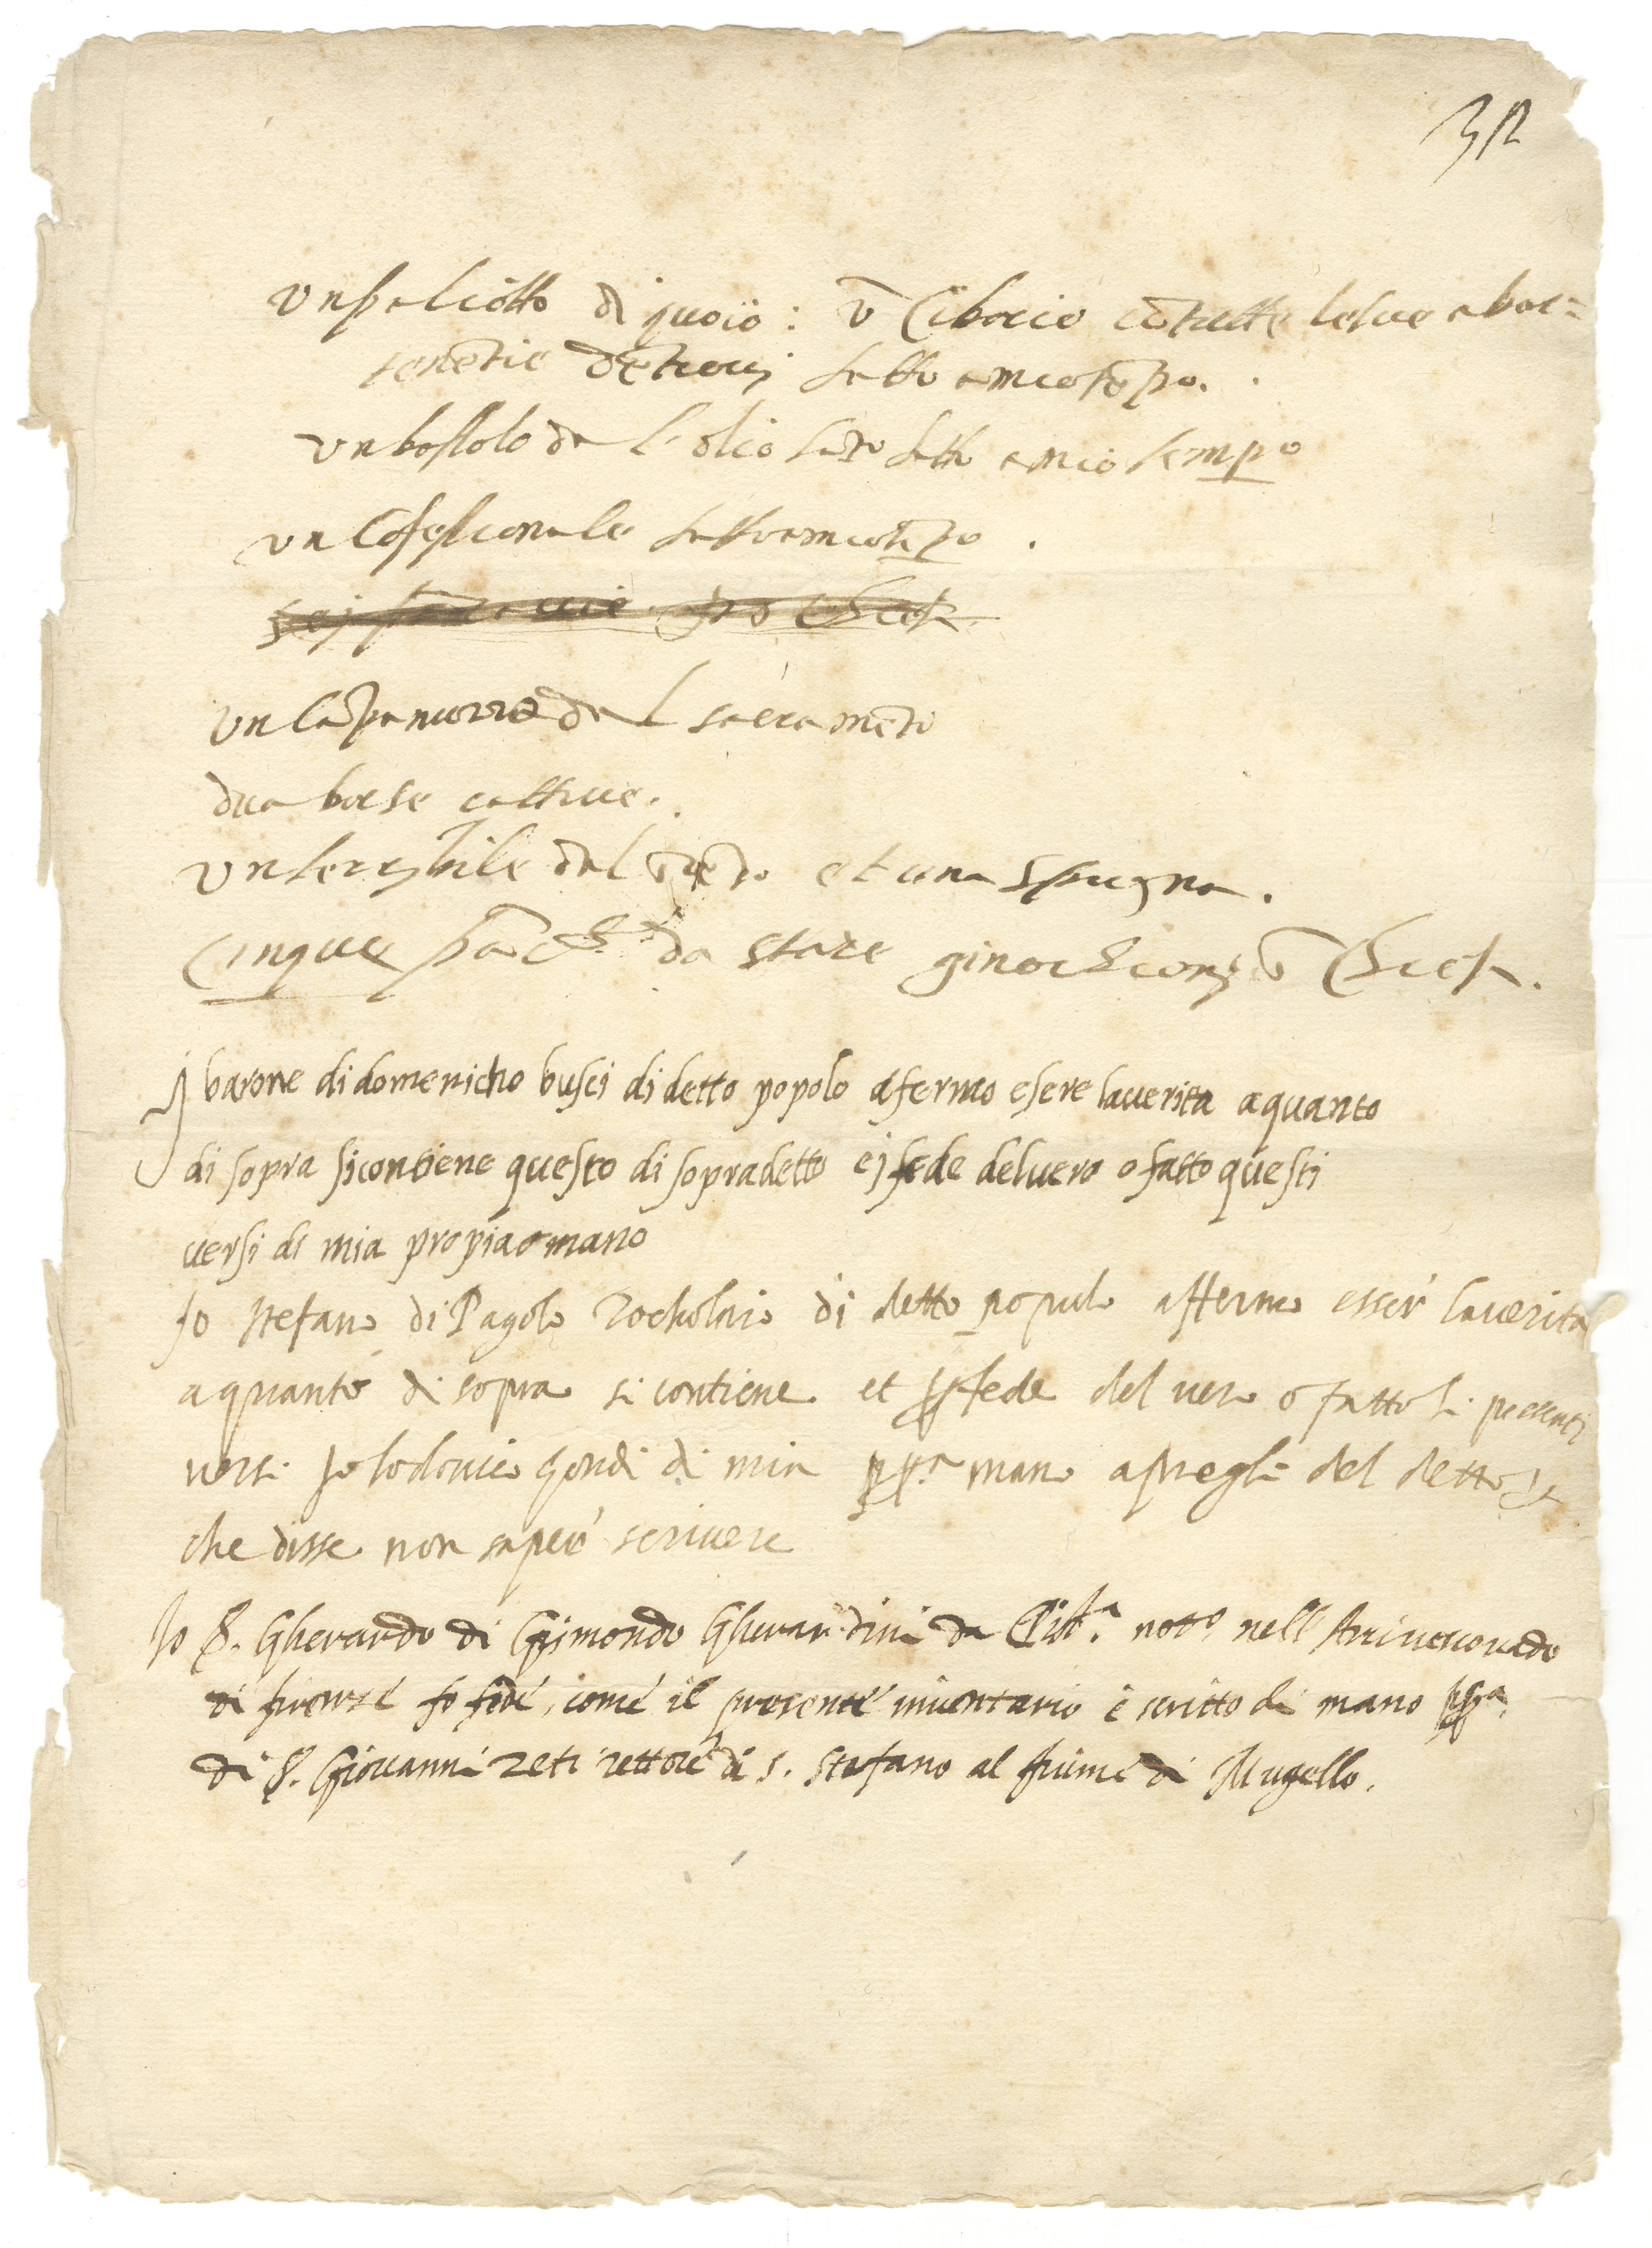 32
un paliotto di quoio: ũ Ciborio cõ tutte le sue apar=
tenẽtie dẽtrovj fatto a mio tẽpo.
un bossolo da l'olio sãto fatto a mio tempo
un Cõfessionale fatto a mio tẽpo.
un Cãpanuzzo dal sacramẽto
dua borse cattive.
un terribile dal et una spugna.
Cinque pãche da stare ginochionj ĩ Chiesa.
Jo barone di domenicho busci di detto popolo afermo esere la uerita a quanto
di sopra si contiene questo di sopradetto e j fede del uero o fatto questi
uersi di mia propia mano
Io stefano di Pagolo di detto popul affermo esser la verita
a quanto di sopra si contiene et p fede del vero o fatto li presenti
versi Jo lodovico gondi di mia pp.a mano a preghi del detto
che disse non saper scrivere
Io S. Gherardo di Gismondo Gherardini da Cist.a not.o nell Arcivescovado
di firenze fo fede, come il presente inventario è scritto di mano ppa.
di S. Giovanni Zeti rettore di s. Stefano al fiume di Mugello.